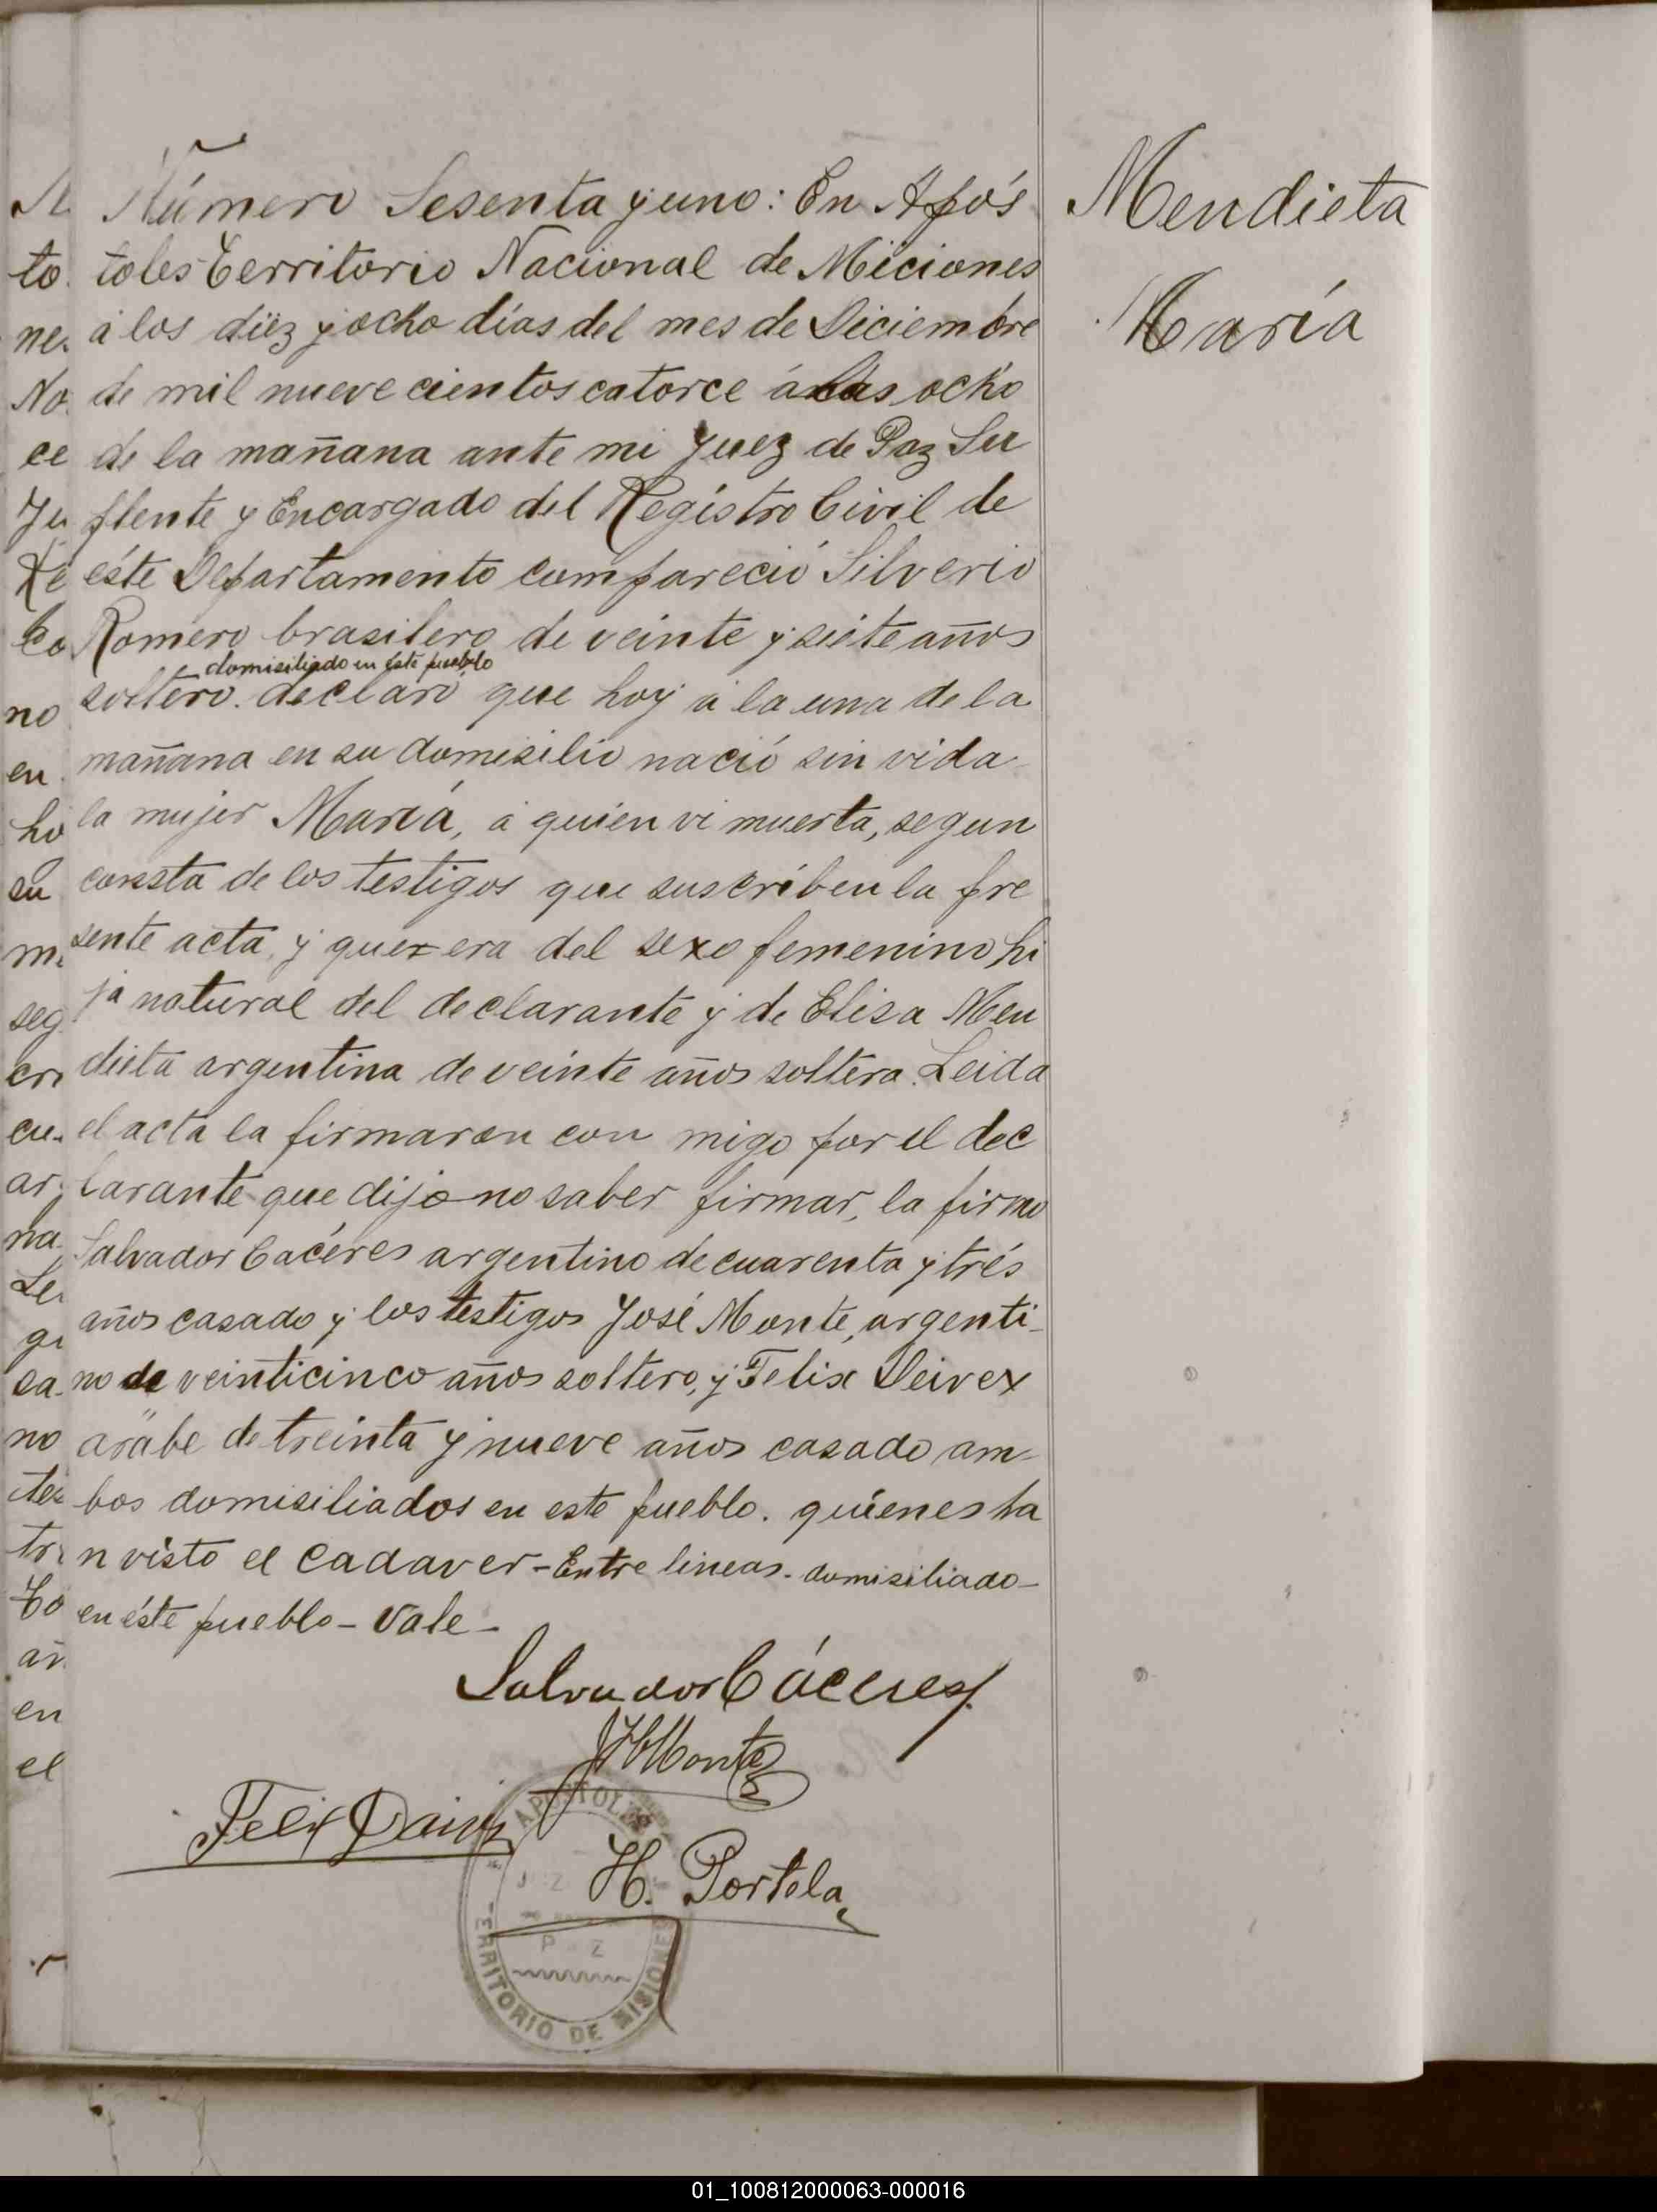 Número Sesenta y uno: En Após
toles Territorio Nacional de Miciones
á los diez y ocho días del mes de Diciembre
de mil nueve cientos catorce á las ocho
de la mañana ante mi Juez de Paz Su
plente y Encargado del Registro Civil de
éste Departamento compareció Silverio
Romero brasilero de veinte y siete años
domisiliado en este pueblo
soltero. declaró que hoy á la una de la
mañana en su domisilio nació sin vida
la mujer María, á quien vi muerta, segun
consta de los testigos que suscriben la pre
sente acta, y que era del sexo femenino hi
ja natural del declarante y de Elisa Men
dieta argentina de veinte años soltera. Leida
el acta la firmaron con migo por el dec
larante que dijo no saber firmar, la firmo
Salvador Cacéres argentino de cuarenta y trés
años casado y los testigos José Monte, argenti-
no de veinticinco años soltero, y Felix Deivex
arabe de treinta y nueve años casado am-
bos domisiliados en este pueblo. quienes ha
n visto el cadaver - Entre lineas - domisiliado -
en éste pueblo - Vale -
Mendieta
María
Salvador Cáceres
JMonte
Felix
H. Portela
APOSTOLES
TERRITORIO DE MISIONES
N
to
ne
No
ce
Ju
Re
Co
no
en
ho
su
mi
seg
cri
cu
ar
na
Le
gi
sa
no
tes
tr
Co
añ
en
el
01_100812000063-000016